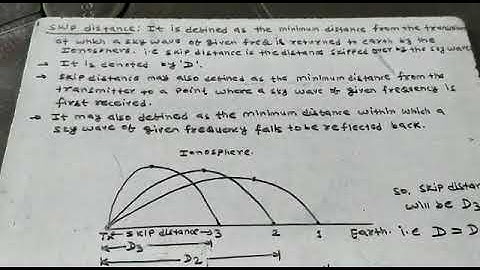 skip distance: It is defined as the minimum distance from the
at which a sky wave of given freq. is returned to earth by the
Ionosphere. i.e skip distance is the distance skipped over by the sky wave
→ It is denoted by 'D'.
→ skip distance may also defined as the minimum distance from the
transmitter to a point where a sky wave of given frequency is
first received.
→ It may also defined as the minimum distance within which a
sky wave of given frequency fails to be reflected back.
Ionosphere.
so, skip
will be D3
Tx ← skip distance → 3 2 1 Earth. i.e D = D
D3
D2